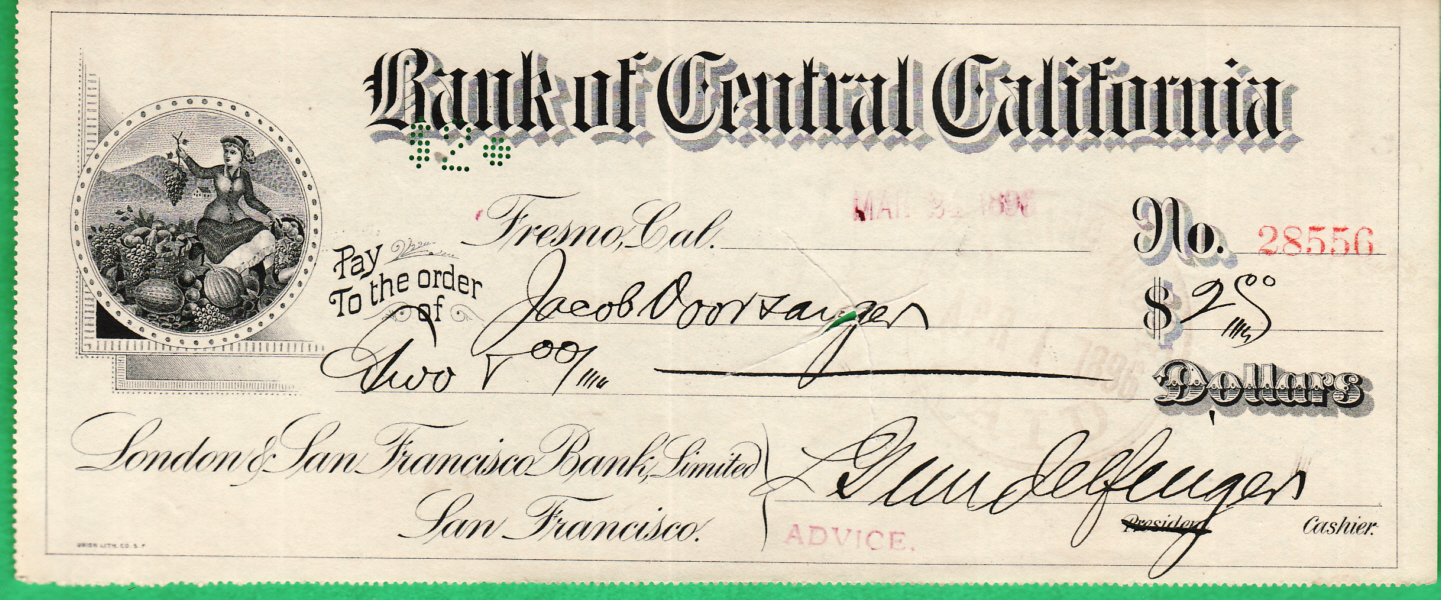 Bank of Central California
$2
Fresno, Cal. MAR 31 1896
No. 28556
Pay
To the order
of Jacob Voorsanger
$ 2 00/
Two & 00/ Dollars
London & San Francisco Bank, Limited
San Francisco.
L Gundelfinger
ADVICE.
President Cashier.
UNION LITH. CO. S. F
1896
PAID